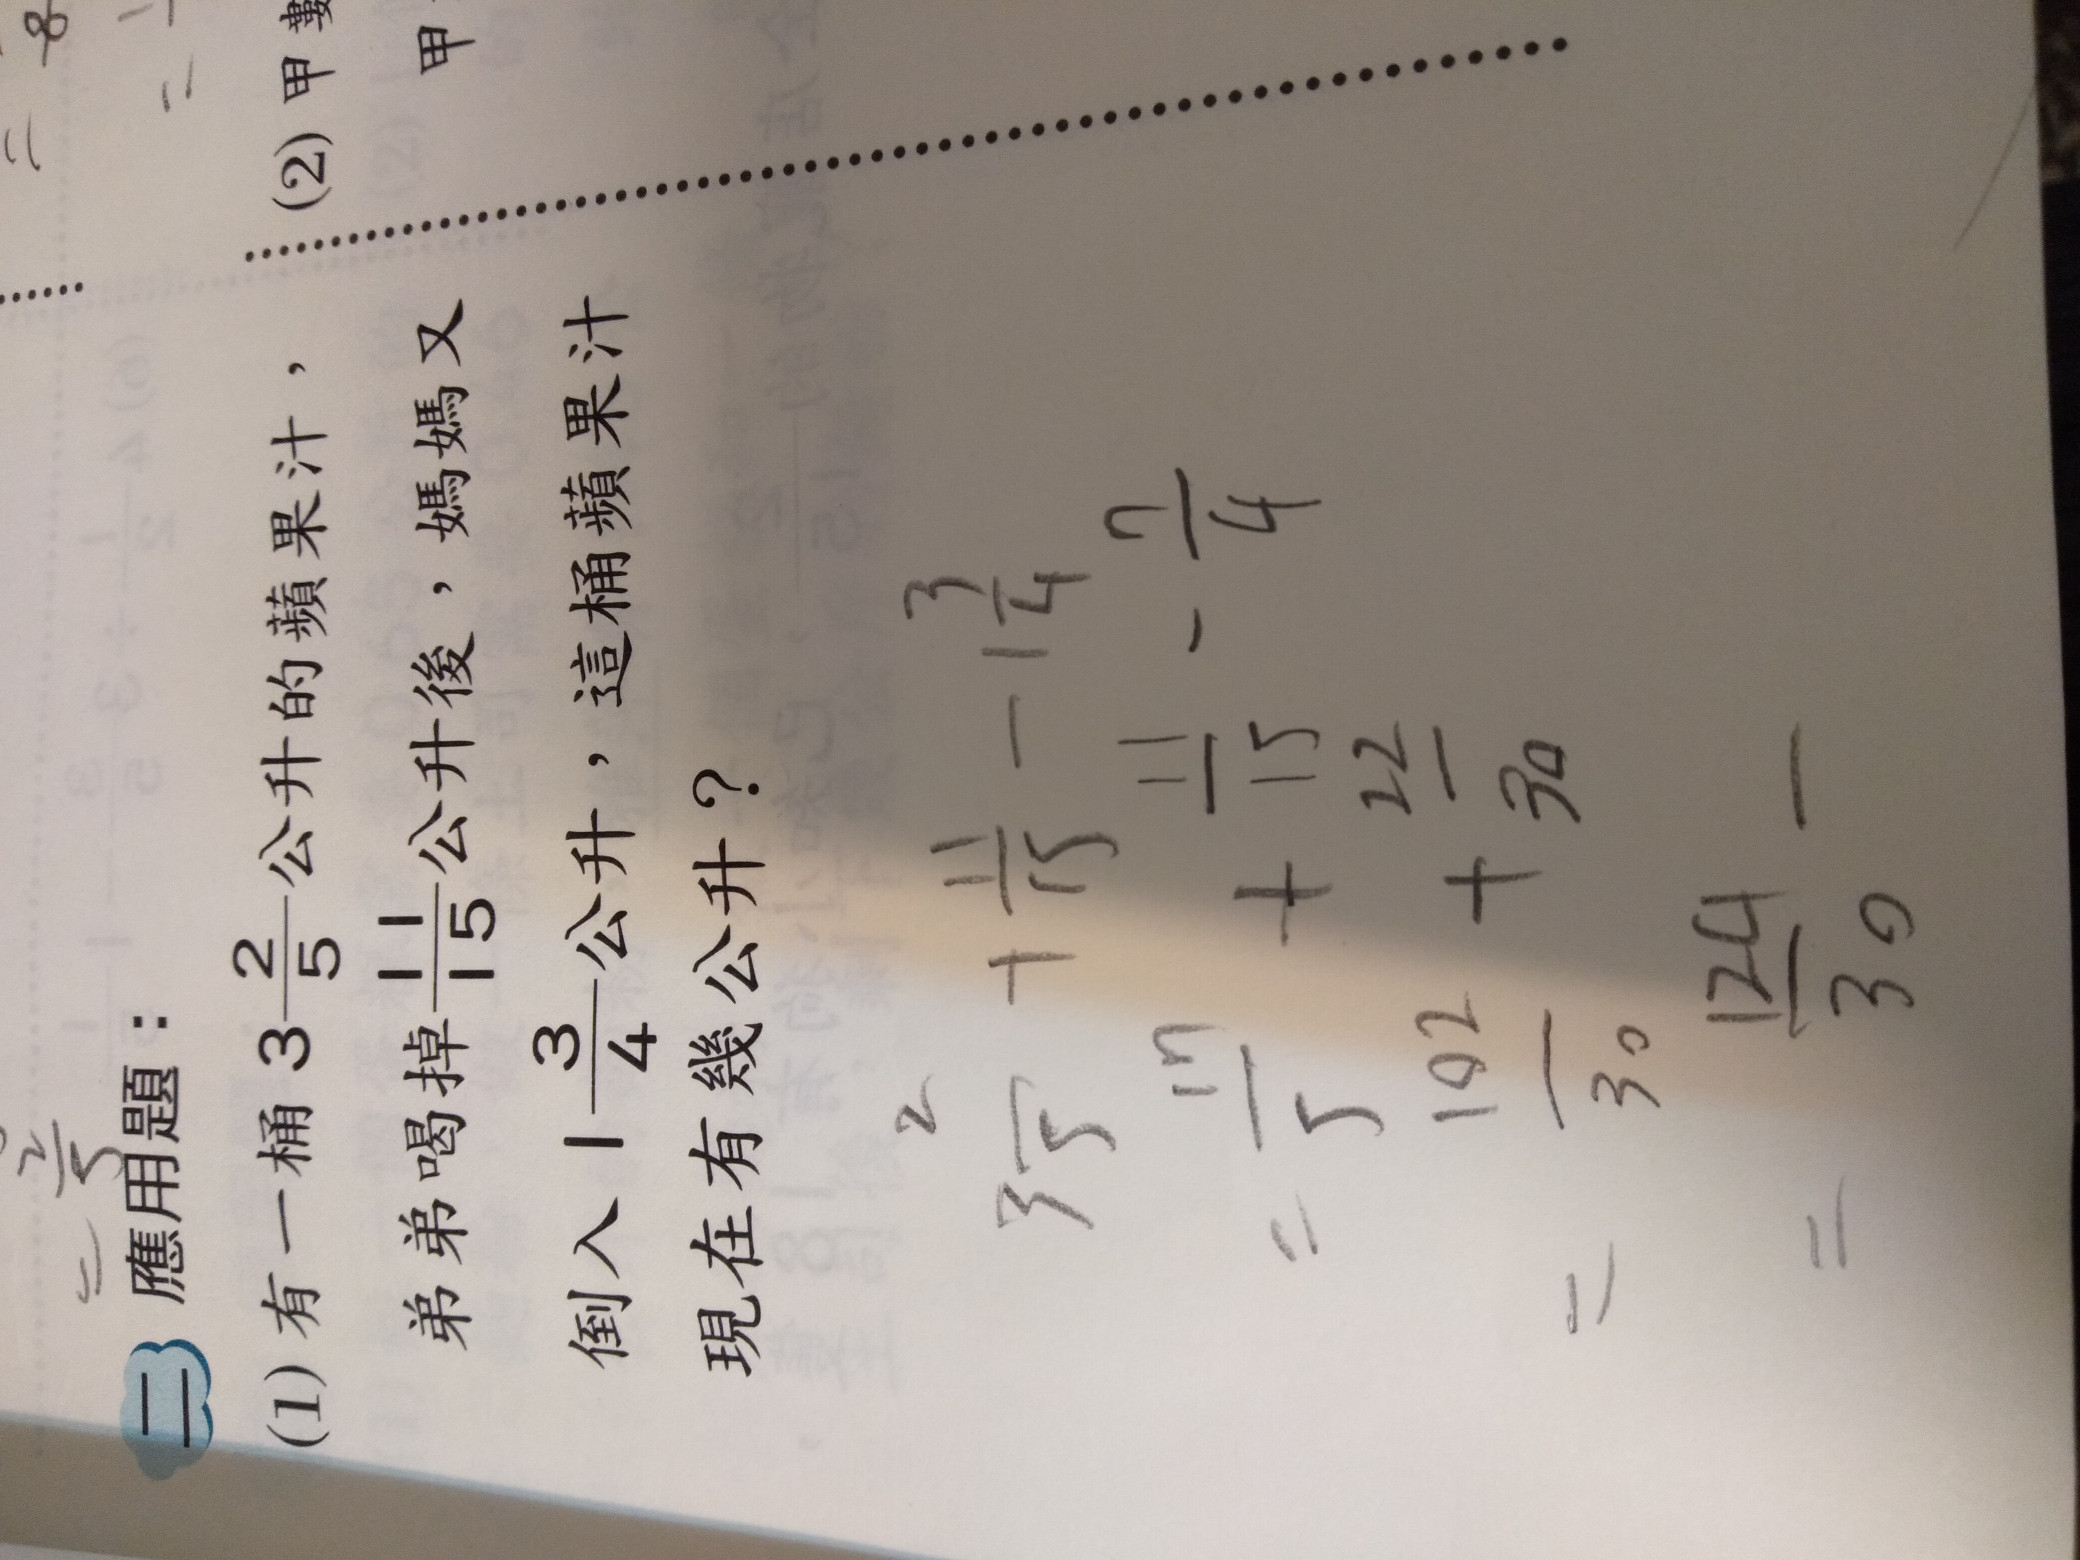 = 2/5
二 應用題：
(1) 有一桶 3 2/5 公升的蘋果汁，
弟弟喝掉 11/15 公升後，媽媽又
倒入 1 3/4 公升，這桶蘋果汁
現在有幾公升？
3 2/5 + 11/15 - 1 3/4
= 17/5 + 11/15 - 7/4
= 102/30 + 22/30
= 124/30 -
= 8
=
(2) 甲數
甲